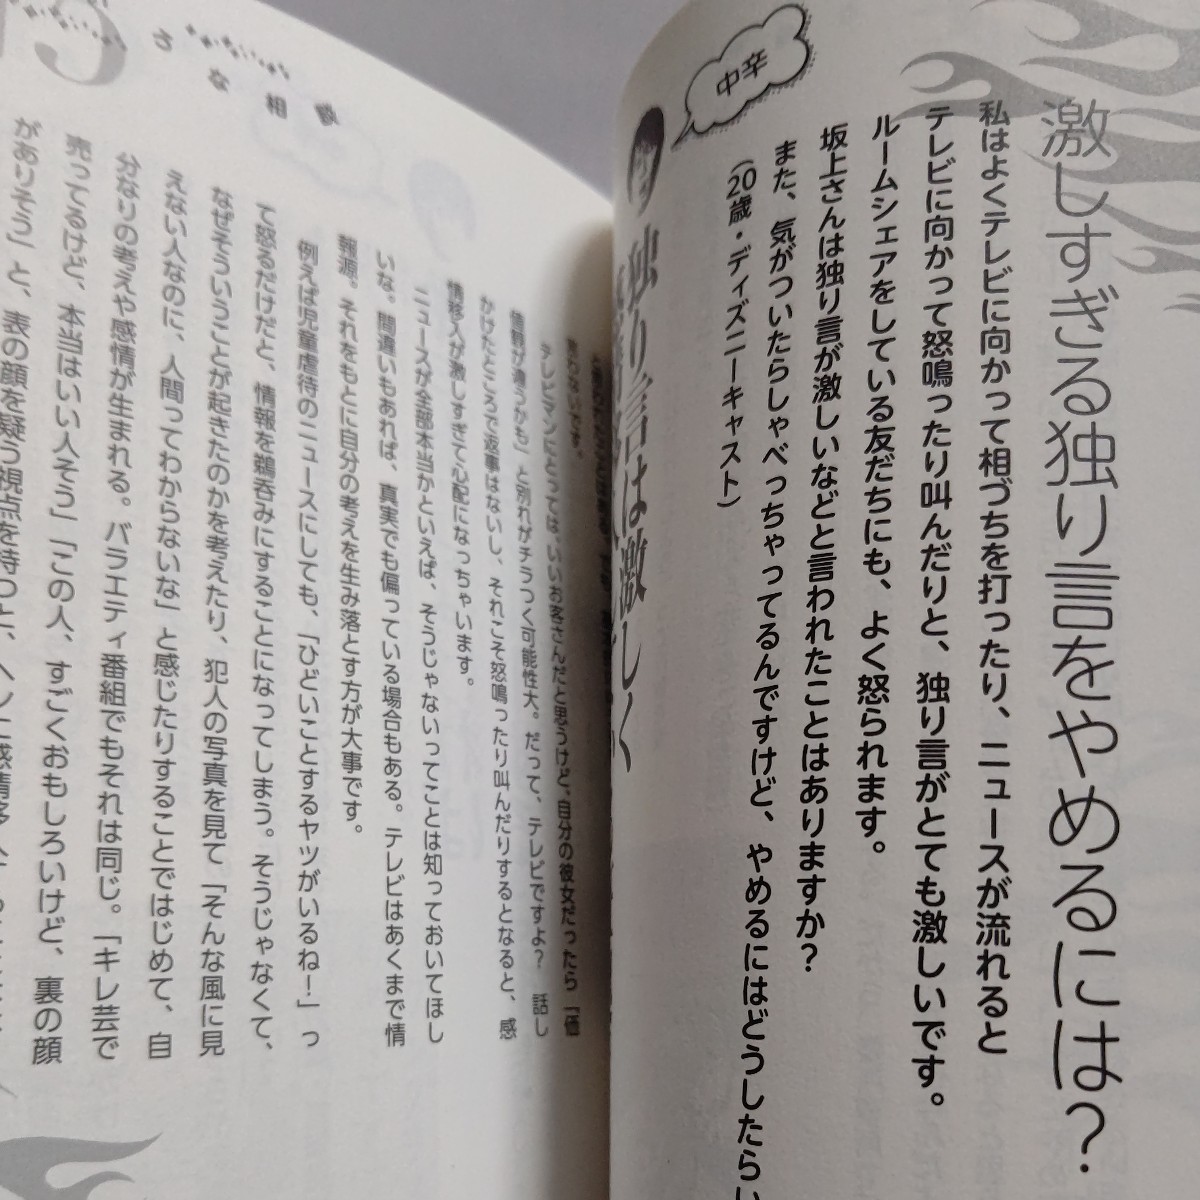 激しすぎる独り言をやめるには？
私はよくテレビに向かって相づちを打ったり、ニュースが流れると
テレビに向かって怒鳴ったり叫んだりと、独り言がとても激しいです。
ルームシェアをしている友だちにも、よく怒られます。
坂上さんは独り言が激しいなどと言われたことはありますか？
また、気がついたらしゃべっちゃってるんですけど、やめるにはどうしたらい
（20歳・ディズニーキャスト）
中辛
独り言は激しく
思わないです。
テレビマンにとってはいいお客さんだと思うけど、自分の彼女だったら「価
値観が違うかも」と別れがチラつく可能性大。だって、テレビですよ？　話し
かけたところで返事はないし、それこそ怒鳴ったり叫んだりするとなると、感
情移入が激しすぎて心配になっちゃいます。
ニュースが全部本当かといえば、そうじゃないってことは知っておいてほし
いな。間違いもあれば、真実でも偏っている場合もある。テレビはあくまで情
報源。それをもとに自分の考えを生み落とす方が大事です。
例えば児童虐待のニュースにしても、「ひどいことするヤツがいるね！」っ
て怒るだけだと、情報を鵜呑みにすることになってしまう。そうじゃなくて、
なぜそういうことが起きたのかを考えたり、犯人の写真を見て「そんな風に見
えない人なのに、人間ってわからないな」と感じたりすることではじめて、自
分なりの考えや感情が生まれる。バラエティ番組でもそれは同じ。「キレ芸で
売ってるけど、本当はいい人そう」「この人、すごくおもしろいけど、裏の顔
がありそう」と、表の顔を疑う視点を持つと、ヘンに感情移入
さな相談